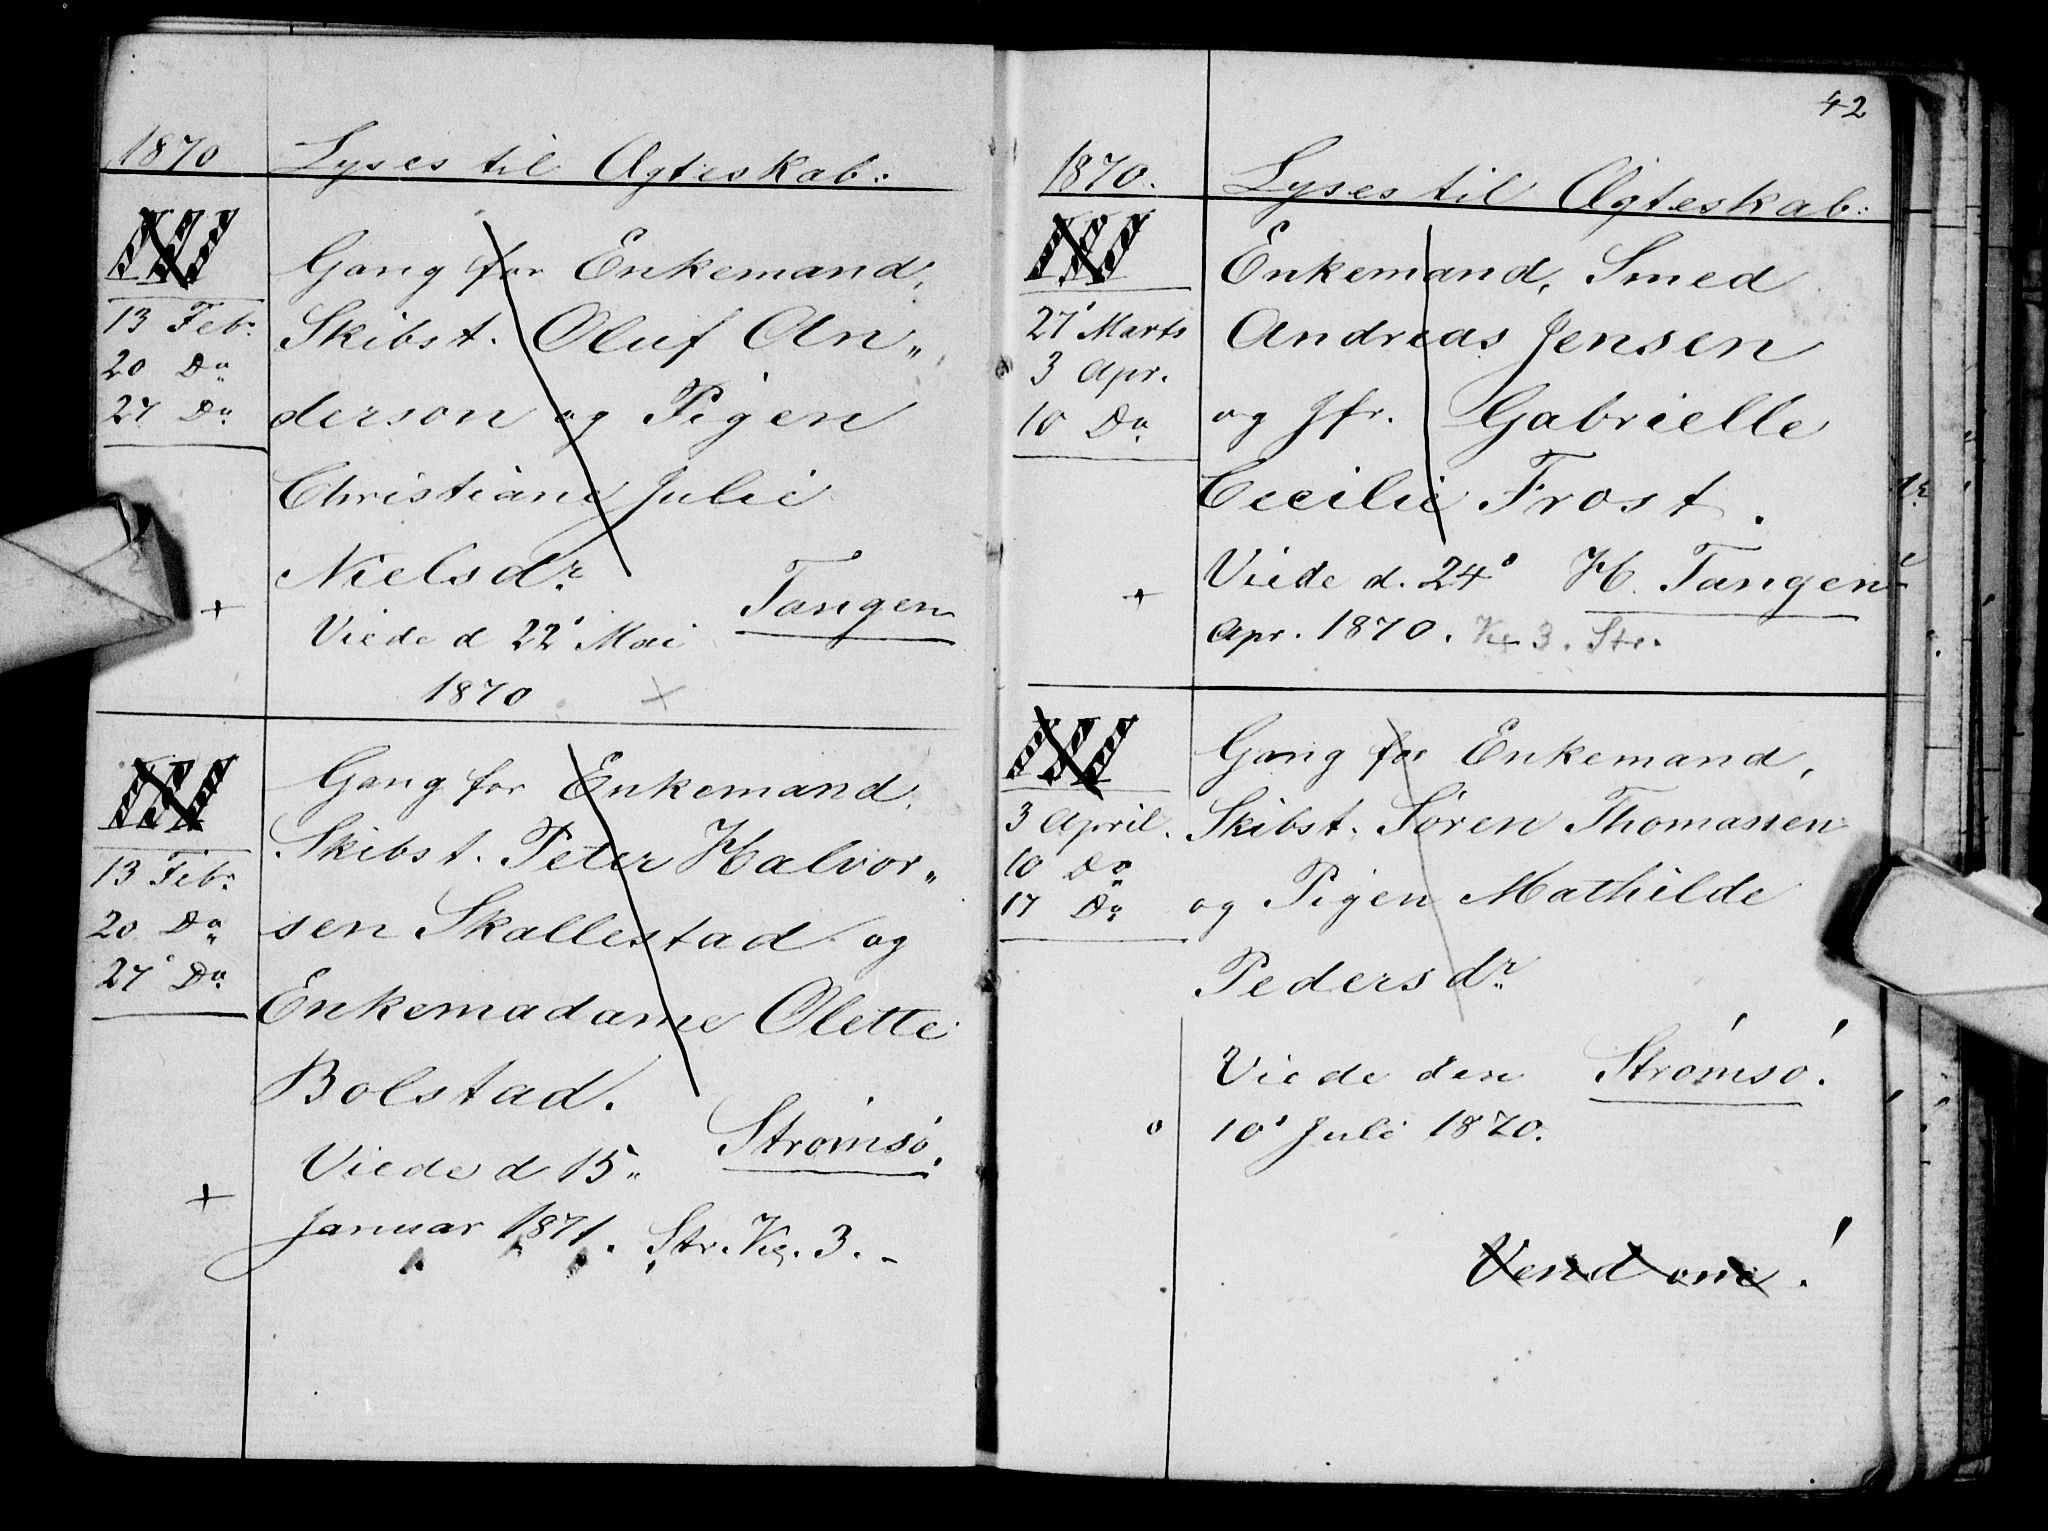 1870 Lyses til Ægteskab:
Gang for Enkemand,
13 Febr. Skibst. Oluf An„
20 Do
27 Do derson og Pigen
Christiane Julie
Nielsdr.
+ Tangen
Viede d 22' Mai
1870 +
Gang for Enkemand,
Skibst. Peter Halvor„
13 Febr.
20 Do sen Skallestad og
27' Do
Enkemadame Olette
Bolstad.
Strømsø.
Viede d 15„
+
Januar 1871. Str. Kg. 3. -
42
1870. Lyses til Ægteskab:
Enkemand, Smed
27' Marts Andreas Jensen
3 Apr.
10 Do og Jfr. Gabrielle
Cecilie Frost.
Viede d. 24' H. Tangen
+
Apr. 1870. Kg 3. Str.
Gang for Enkemand,
3 April. Skibst. Sören Thomassen
10 Do
17 Do og Pigen Mathilde
Pedersdr.
Viede den Strømsø!
o 10' Juli 1870.
Vend om!